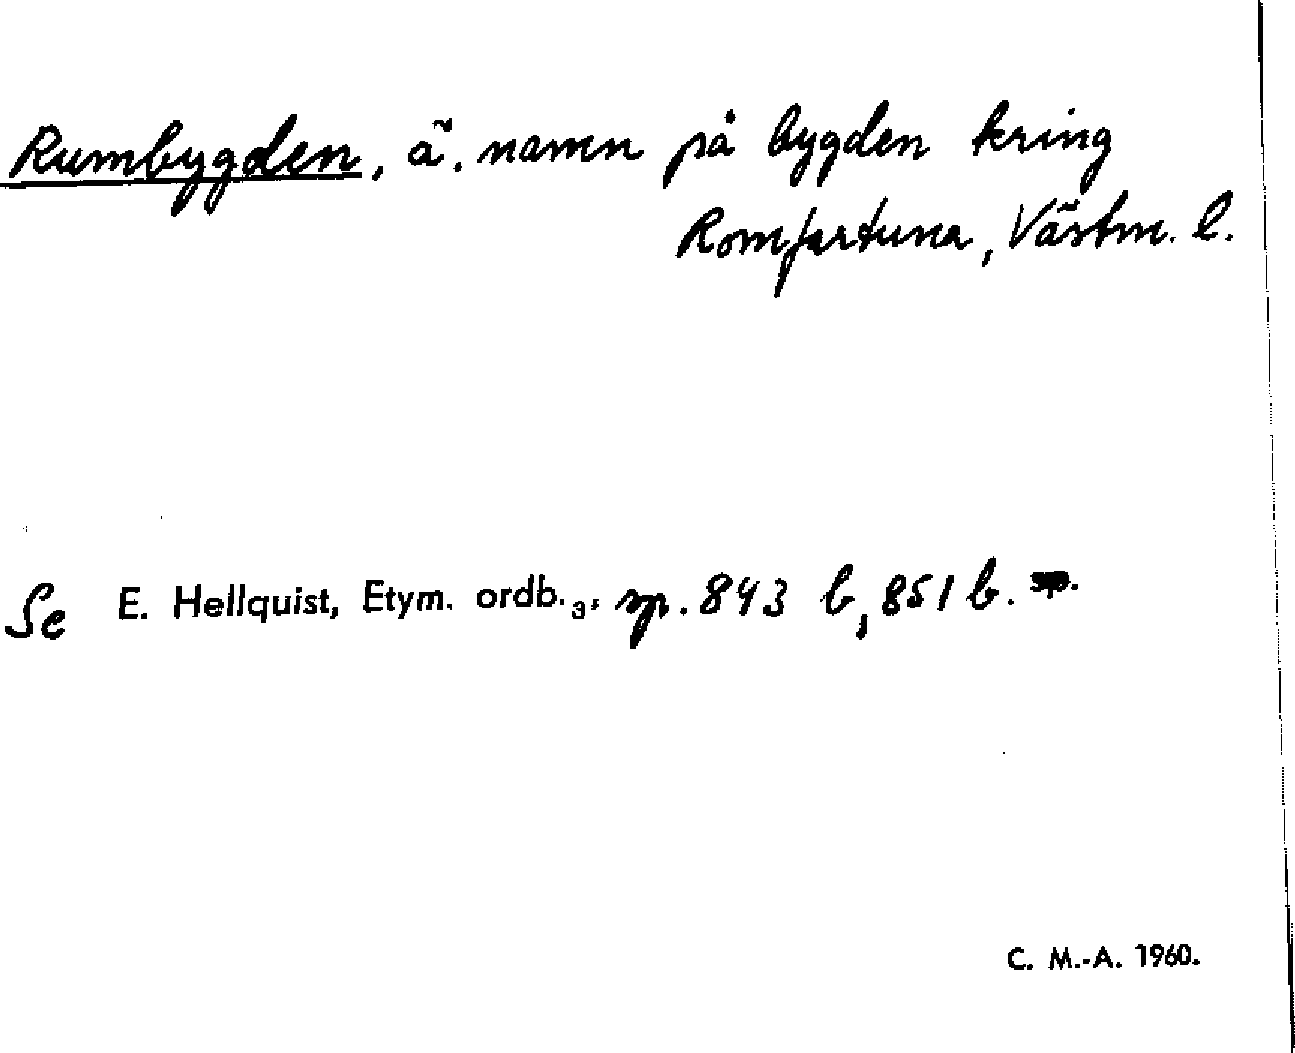 Rumbygden, ä. namn på bygden kring
Romfartuna, Västm. l.
Se E. Hellquist, Etym. ordb.₃, sp. 843 b, 851 b.
C. M.-A. 1960.